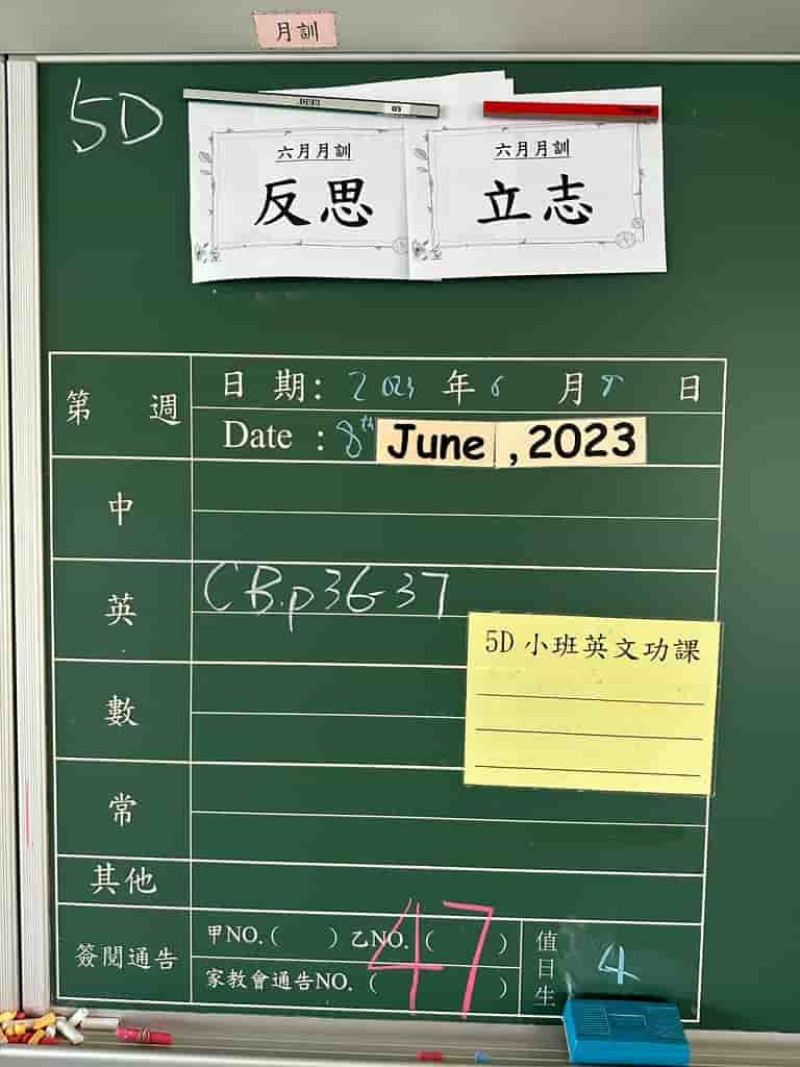 月訓
5D
六月月訓
反思
六月月訓
立志
第 週
日 期: 2023 年 6 月 8 日
Date : 8th June , 2023
中
英
CB.p36-37
5D 小班英文功課
數
常
其他
簽閱通告
甲NO.( ) 乙NO.( )
家教會通告NO.( )
47
值日生
4